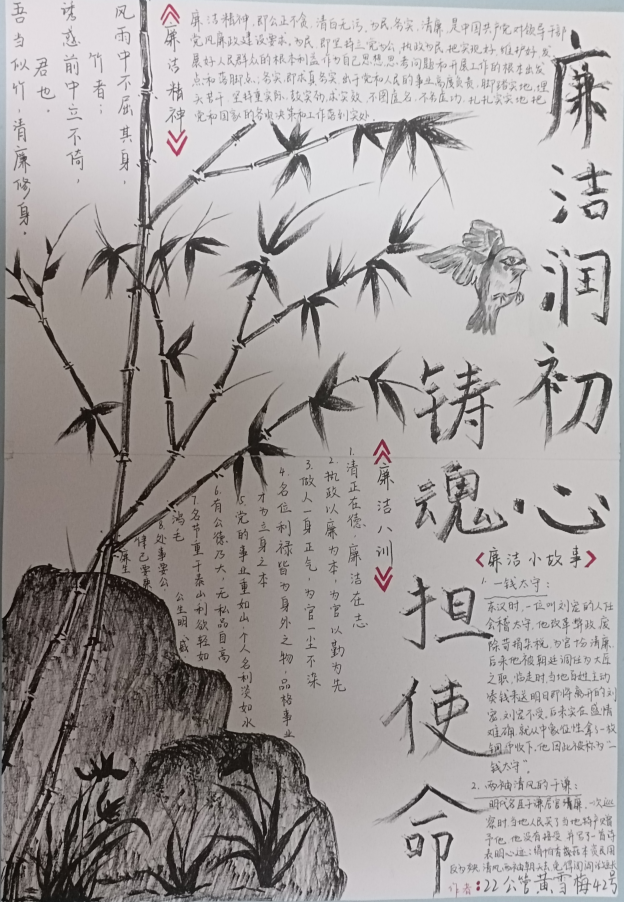 廉洁润初心
铸魂担使命
廉洁精神
廉洁精神,即公正不贪,清白无污,为民,务实,清廉,是中国共产党对领导干部
党风廉政建设要求。为民,即坚持立党为公,执政为民,把实现好,维护好,发
展好人民群众的根本利益作为自己思想思考问题和开展工作的根本出发
点和落脚点。务实,即求真务实,出于党和人民的事业高度负责,脚踏实地,埋
头苦干,坚持重实际,鼓实劲,求实效,不图虚名,不务虚功,扎扎实实地把
党和国家的各项决策和工作落到实处。
风雨中不屈其身,
竹者;
诱惑前中立不倚,
君也.
吾当似竹,清廉修身.
廉洁八训
1.清正在德,廉洁在志
2.执政以廉为本,为官以勤为先
3.做人一身正气,为官一尘不染
4.名位利禄皆为身外之物,品格事业
才为立身之本
5.党的事业重如山,个人名利淡如水
6.有公德乃大,无私品自高
7.名节重于泰山,利欲轻如
鸿毛
8.处事要公,公生明
律己要廉,
廉生威
廉洁小故事
1.一钱太守:
东汉时,一位叫刘宠的人任
会稽太守,他改革弊政,废
除苛捐杂税,为官十分清廉。
后来他被朝廷调任为大匠
之职,临走时,当地百姓主动
凑钱来送明日即将离开的刘
宠,刘宠不受,后来实在盛情
难确,就从中拿一枚
铜钱收下。他因此被称为"一
钱太守"。
2.两袖清风的于谦:
明代名臣于谦居官清廉,一次巡
察时,当地人民买了当地特产赠
予他,他没有接受,并写了一首诗
表明心迹:绢帕蘑菇本资民用
反为殃,清风两袖朝天去,免得闾阎话短长
作者:22公管黄雪梅42号